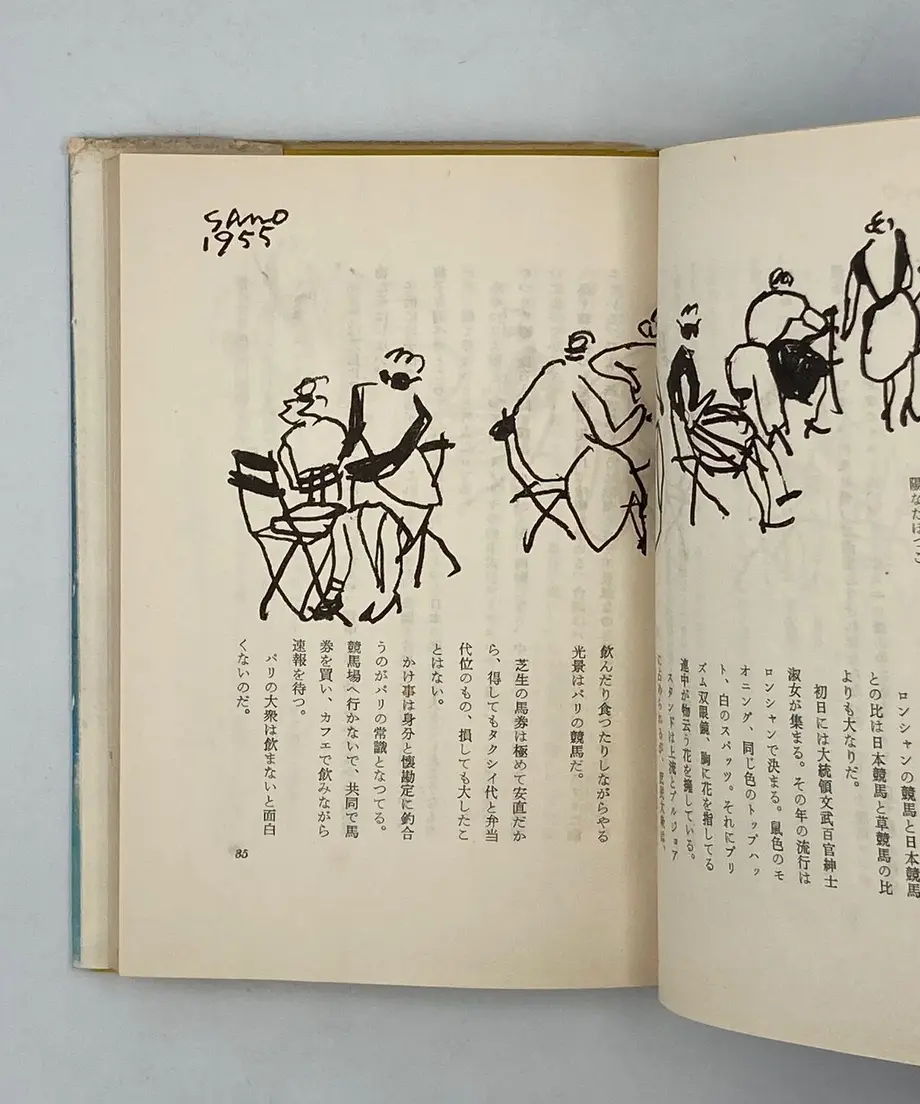 陽なたぼつこ
ロンシャンの競馬と日本競馬
との比は日本競馬と草競馬の比
よりも大なりだ。
初日には大統領文武百官紳士
淑女が集まる。その年の流行は
ロンシャンで決まる。鼠色のモ
オニング、同じ色のトップハッ
ト、白のスパッツ。それにプリ
ズム双眼鏡、胸に花を指してる
連中が物云う花を擁している。
スタンドは上流とブルジョア
SANO
1955
飲んだり食つたりしながらやる
光景はパリの競馬だ。
芝生の馬券は極めて安直だか
ら、得してもタクシイ代と弁当
代位のもの、損しても大したこ
とはない。
かけ事は身分と懐勘定に釣合
うのがパリの常識となつてる。
競馬場へ行かないで、共同で馬
券を買い、カフエで飲みながら
速報を待つ。
パリの大衆は飲まないと面白
くないのだ。
85